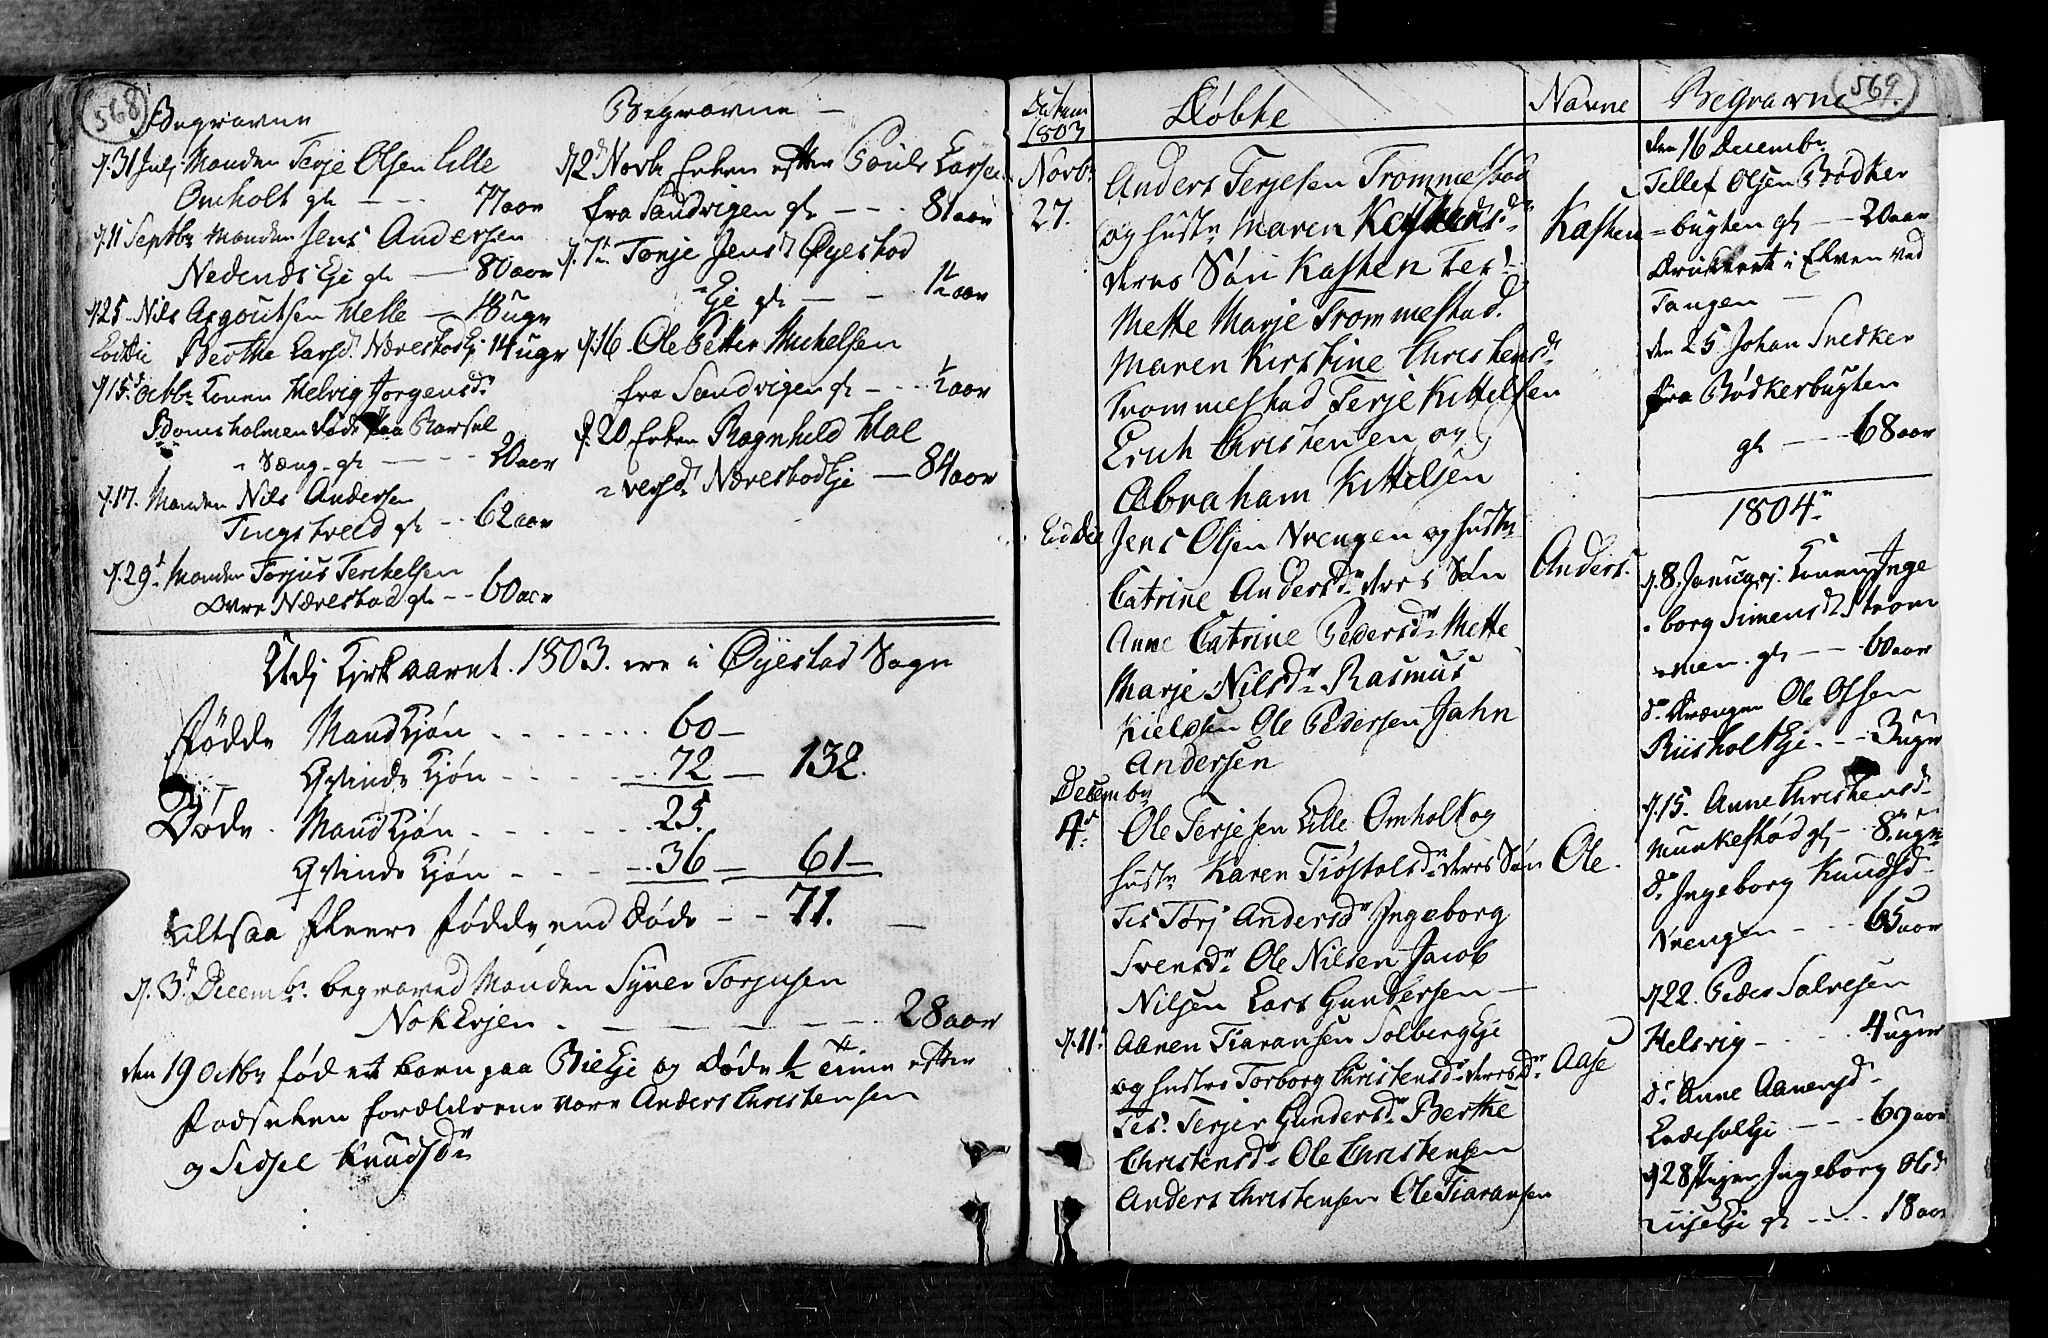 568
Begravne
d. 31 Julj Manden Terje Olsen Lille
Omholt gl. — 77 aar
d. 11 Septbr Manden Jens Andersen
Nedenæs Eje gl. — 80 aar
d. 25 Nils Asgoutsen Helle — 18 ugr
Eod die Berthe Larsd. Nærestad Ej. 14 ugr
d. 15 octbr Konen Helvig Jorgensdr
Bomsholmen døde paa Barsel
Sæng. gl. — 20 aar
d. 17. Manden Nils Andersen
Tingstveed gl. — 62 aar
d. 29 Manden Torjus Terchelsen
Øvre Nærestad gl. — 60 aar
Begravne —
d. 2 Novbr Enken efter Povls Larsen
fra Sandvigen gl. — 81 aar
d. 7 Tonje Jensd. Øyestad
Eje gl. — 1½ aar
d. 16. Ole Petter Michelsen
fra Sandvigen gl. — ½ aar
d. 20 Enken Ragnhild Hal
versd. Nærestad Eje — 84 aar
Udj Kirkeaaret. 1803. ere i Øyestad Sogn
Fødde Mandkjøn — 60 —
Qvindekjøn — 72 — 132.
Døde. Mandkjøn — 25.
Qvindekjøn — 36 — 61 —
Altsaa fleere fødde end Døde — 71.
d. 3 Decembr. begraved Manden Syver Torjusen
NokEvjen — 28 aar
den 19 Octbr fød et barn paa Bie Eje og døde ½ Time efter
Fødselen forældrene vare Anders Christensen
og Sidsel Knudsdr
569.
Datum
1803
Døbte
Navne
Begravne
Novbr
27.
Anders Terjesen Trommestad
og hustr Maren Kastensdr
deres Søn Kasten Tes:
Mette Marje Trommestad.
Maren Kirstine Christensdr
Trommestad Terje Kittelsen
Erich Christensen og
Abraham Kittelsen
Kasten
Eod Die Jens Olsen Vrengen og hustr
Catrine Andersdr deres Søn
Anne Catrine Pedersdr Mette
Marje Nilsdr Rasmus
Kieldsen Ole Pedersen Jahn
Andersen
Anders.
Decembr
4
Ole Terjesen Lille Omholt og
hustr Karen Tiøstolsdr deres Søn
Tes Torj Andersdr Ingeborg
Svensdr Ole Nilsen Jacob
Nilsen Lars Gundersen —
Ole.
d. 11. Aanen Tiaransen Solberg Eje
og hustro Torborg Christensdr deres Dr
Tes. Terjer Gundersdr Berthe
Christensdr Ole Christensen
Anders Christensen Ole Tiaransen
Aase
den 16 Decembr
Tellef Olsen Bødker
bugten gl. — 20 aar
Druknet i Elven ved
Tangen —
den 25 Johan Snedker
fra Bødkerbugten
gl. — 68 aar
1804
d. 8. Januarj. Konen Inge
borg Simensdr Strøm
men. gl. — 60 aar
do Drængen Ole Olsen
Riisholt Eje — 3 ugr
d. 15. Anne Christensdr
Munkestød gl. — 8 ugr
do Ingeborg Knudsdr
Vrengen — 65 aar
d. 22. Peder Salvesen
Helsvig — 4 ugr
do Anne Aanensdr
— 67 aar
d. 28 Pigen Ingeborg Olsdr
Eje gl. — 18 aar